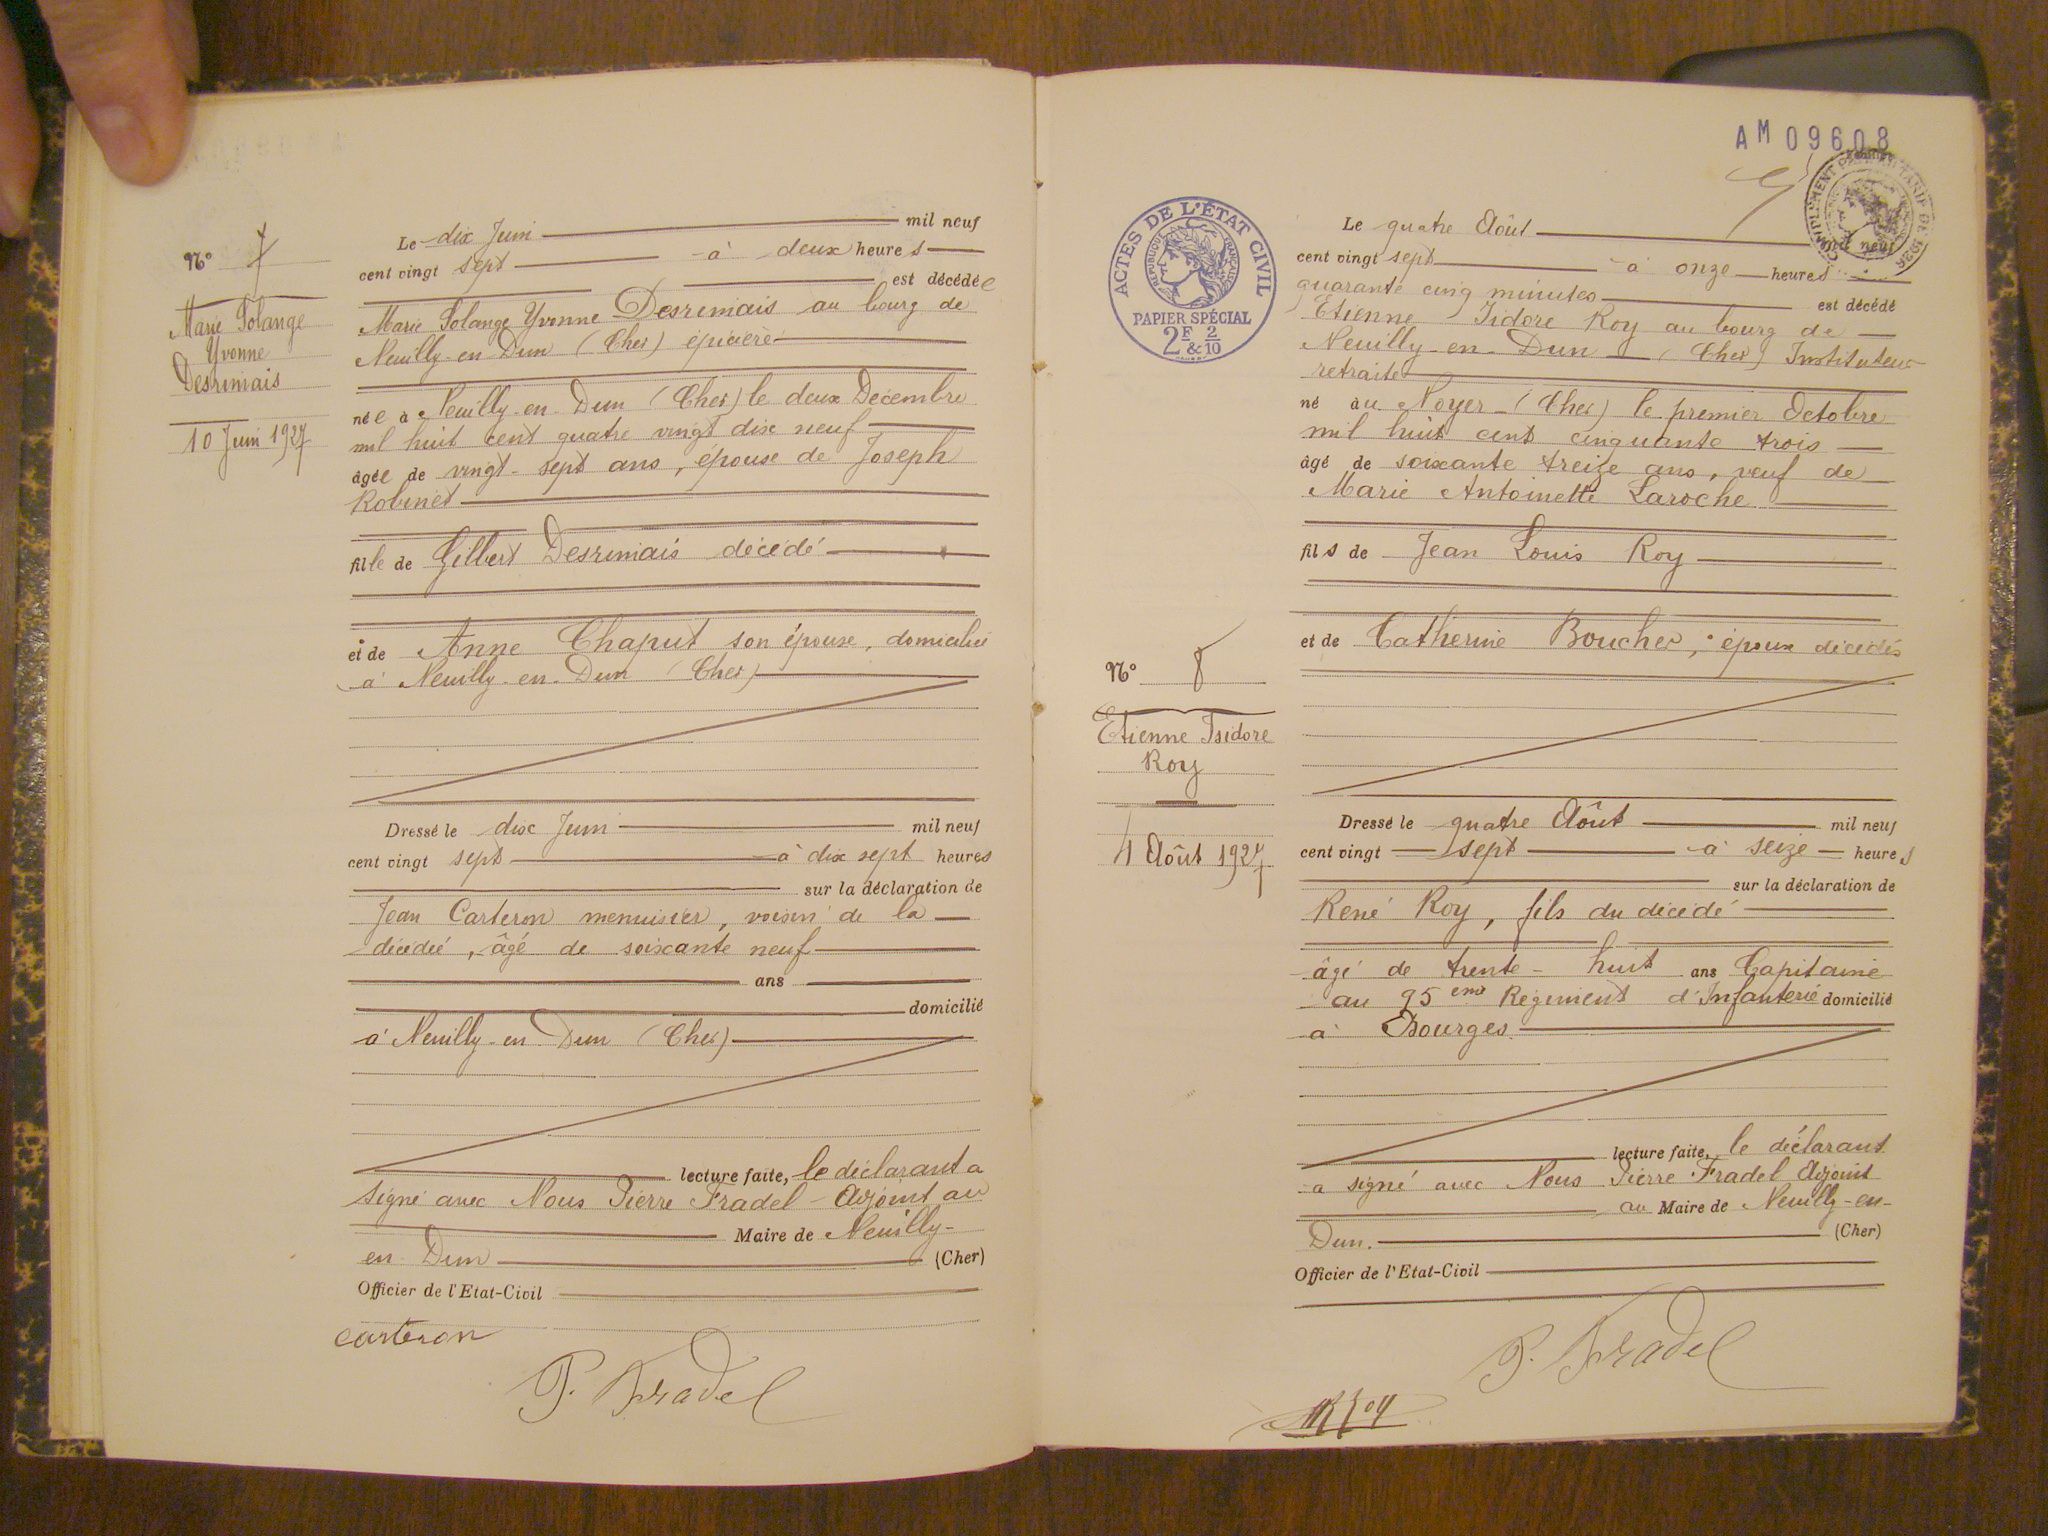 N° 7
Marie Solange
Yvonne
Desrimais
10 Juin 1927
Le dix Juin mil neuf
cent vingt sept à deux heures
est décédée
Marie Solange Yvonne Desrimais au bourg de
Neuilly-en-Dun (Cher) épicière
née à Neuilly-en-Dun (Cher) le deux Décembre
mil huit cent quatre vingt dix neuf
âgée de vingt-sept ans, épouse de Joseph
Robinet
fille de Gilbert Desrimais décédé
et de Anne Chaput son épouse, domiciliée
à Neuilly-en-Dun (Cher)
Dressé le dix Juin mil neuf
cent vingt sept à dix sept heures
sur la déclaration de
Jean Carteron menuisier, voisin de la
décédée, âgé de soixante neuf
ans
domicilié
à Neuilly-en-Dun (Cher)
lecture faite, le déclarant a
signé avec Nous Pierre Fradel Adjoint au
Maire de Neuilly-
en Dun (Cher)
Officier de l'Etat-Civil
carteron
P. Fradel
AM 09608
ACTES DE L'ÉTAT CIVIL
RÉPUBLIQUE FRANÇAISE
PAPIER SPÉCIAL
2F & 2/10
COMPLÉMENT TARIF DE 1926
N° 8
Etienne Isidore
Roy
4 Août 1927
Le quatre Août mil neuf
cent vingt sept à onze heures
quarante cinq minutes est décédé
Etienne Isidore Roy au bourg de
Neuilly-en-Dun (Cher) Instituteur
retraité
né au Noyer (Cher) le premier Octobre
mil huit cent cinquante trois
âgé de soixante treize ans, veuf de
Marie Antoinette Laroche
fils de Jean Louis Roy
et de Catherine Boucher, époux décédés
Dressé le quatre Août mil neuf
cent vingt sept à seize heures
sur la déclaration de
René Roy, fils du décédé
âgé de trente-huit ans Capitaine
au 95eme Régiment d'Infanterie domicilié
à Bourges
lecture faite, le déclarant
a signé avec Nous Pierre Fradel Adjoint
au Maire de Neuilly-en-
Dun. (Cher)
Officier de l'Etat-Civil
P. Fradel
R Roy